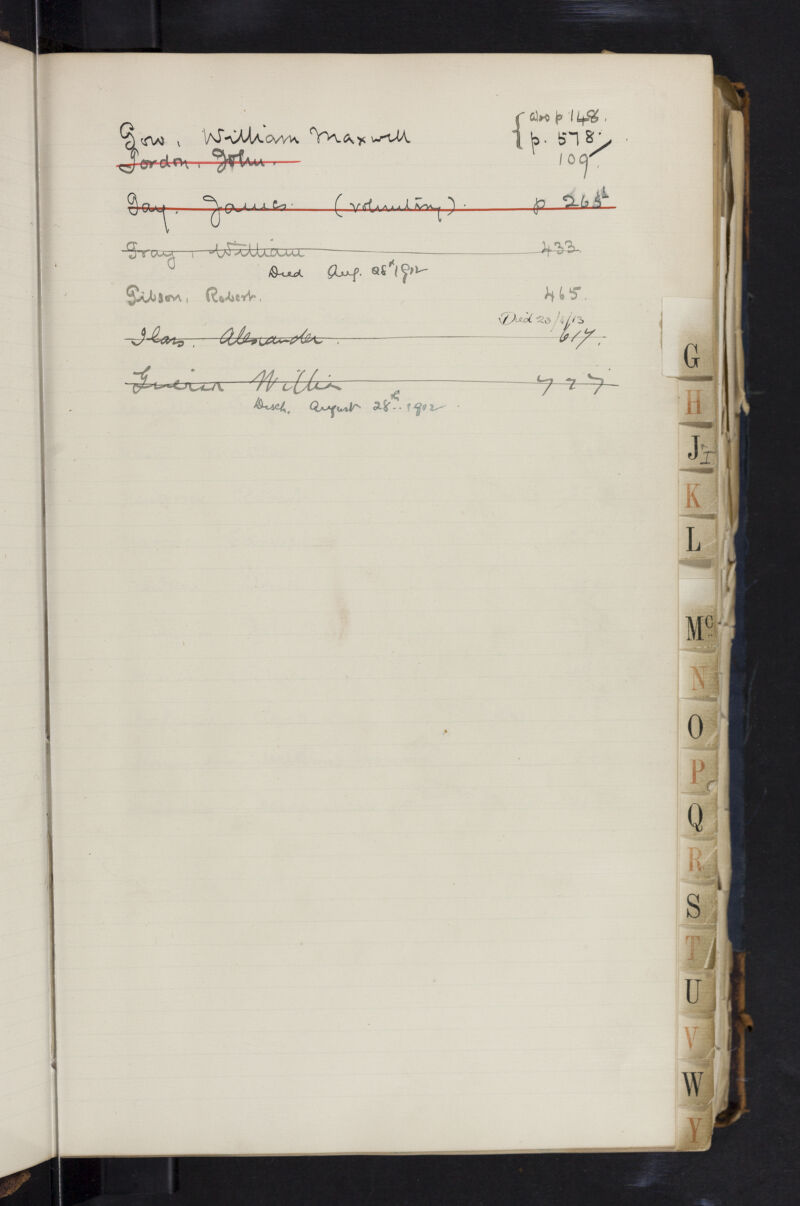 Gow, William Maxwell { also p 148.
p. 578.
Gordon, John. 109
Gay. James. (voluntary). p 265
Gray, William 433
Died Aug. 28th 1912
Gibson, Robert. 465.
Died 20/4/13
Alexander. 617.
Willia 727
Disch. August 28th 1912
G
H
J I
K
L
Mc
N
O
P
Q
R
S
T
U
V
W
Y